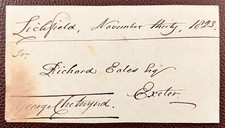 Lichfield, November thirty, 1823.
To
Richard Eales Esq
Exeter
George Chetwynd.